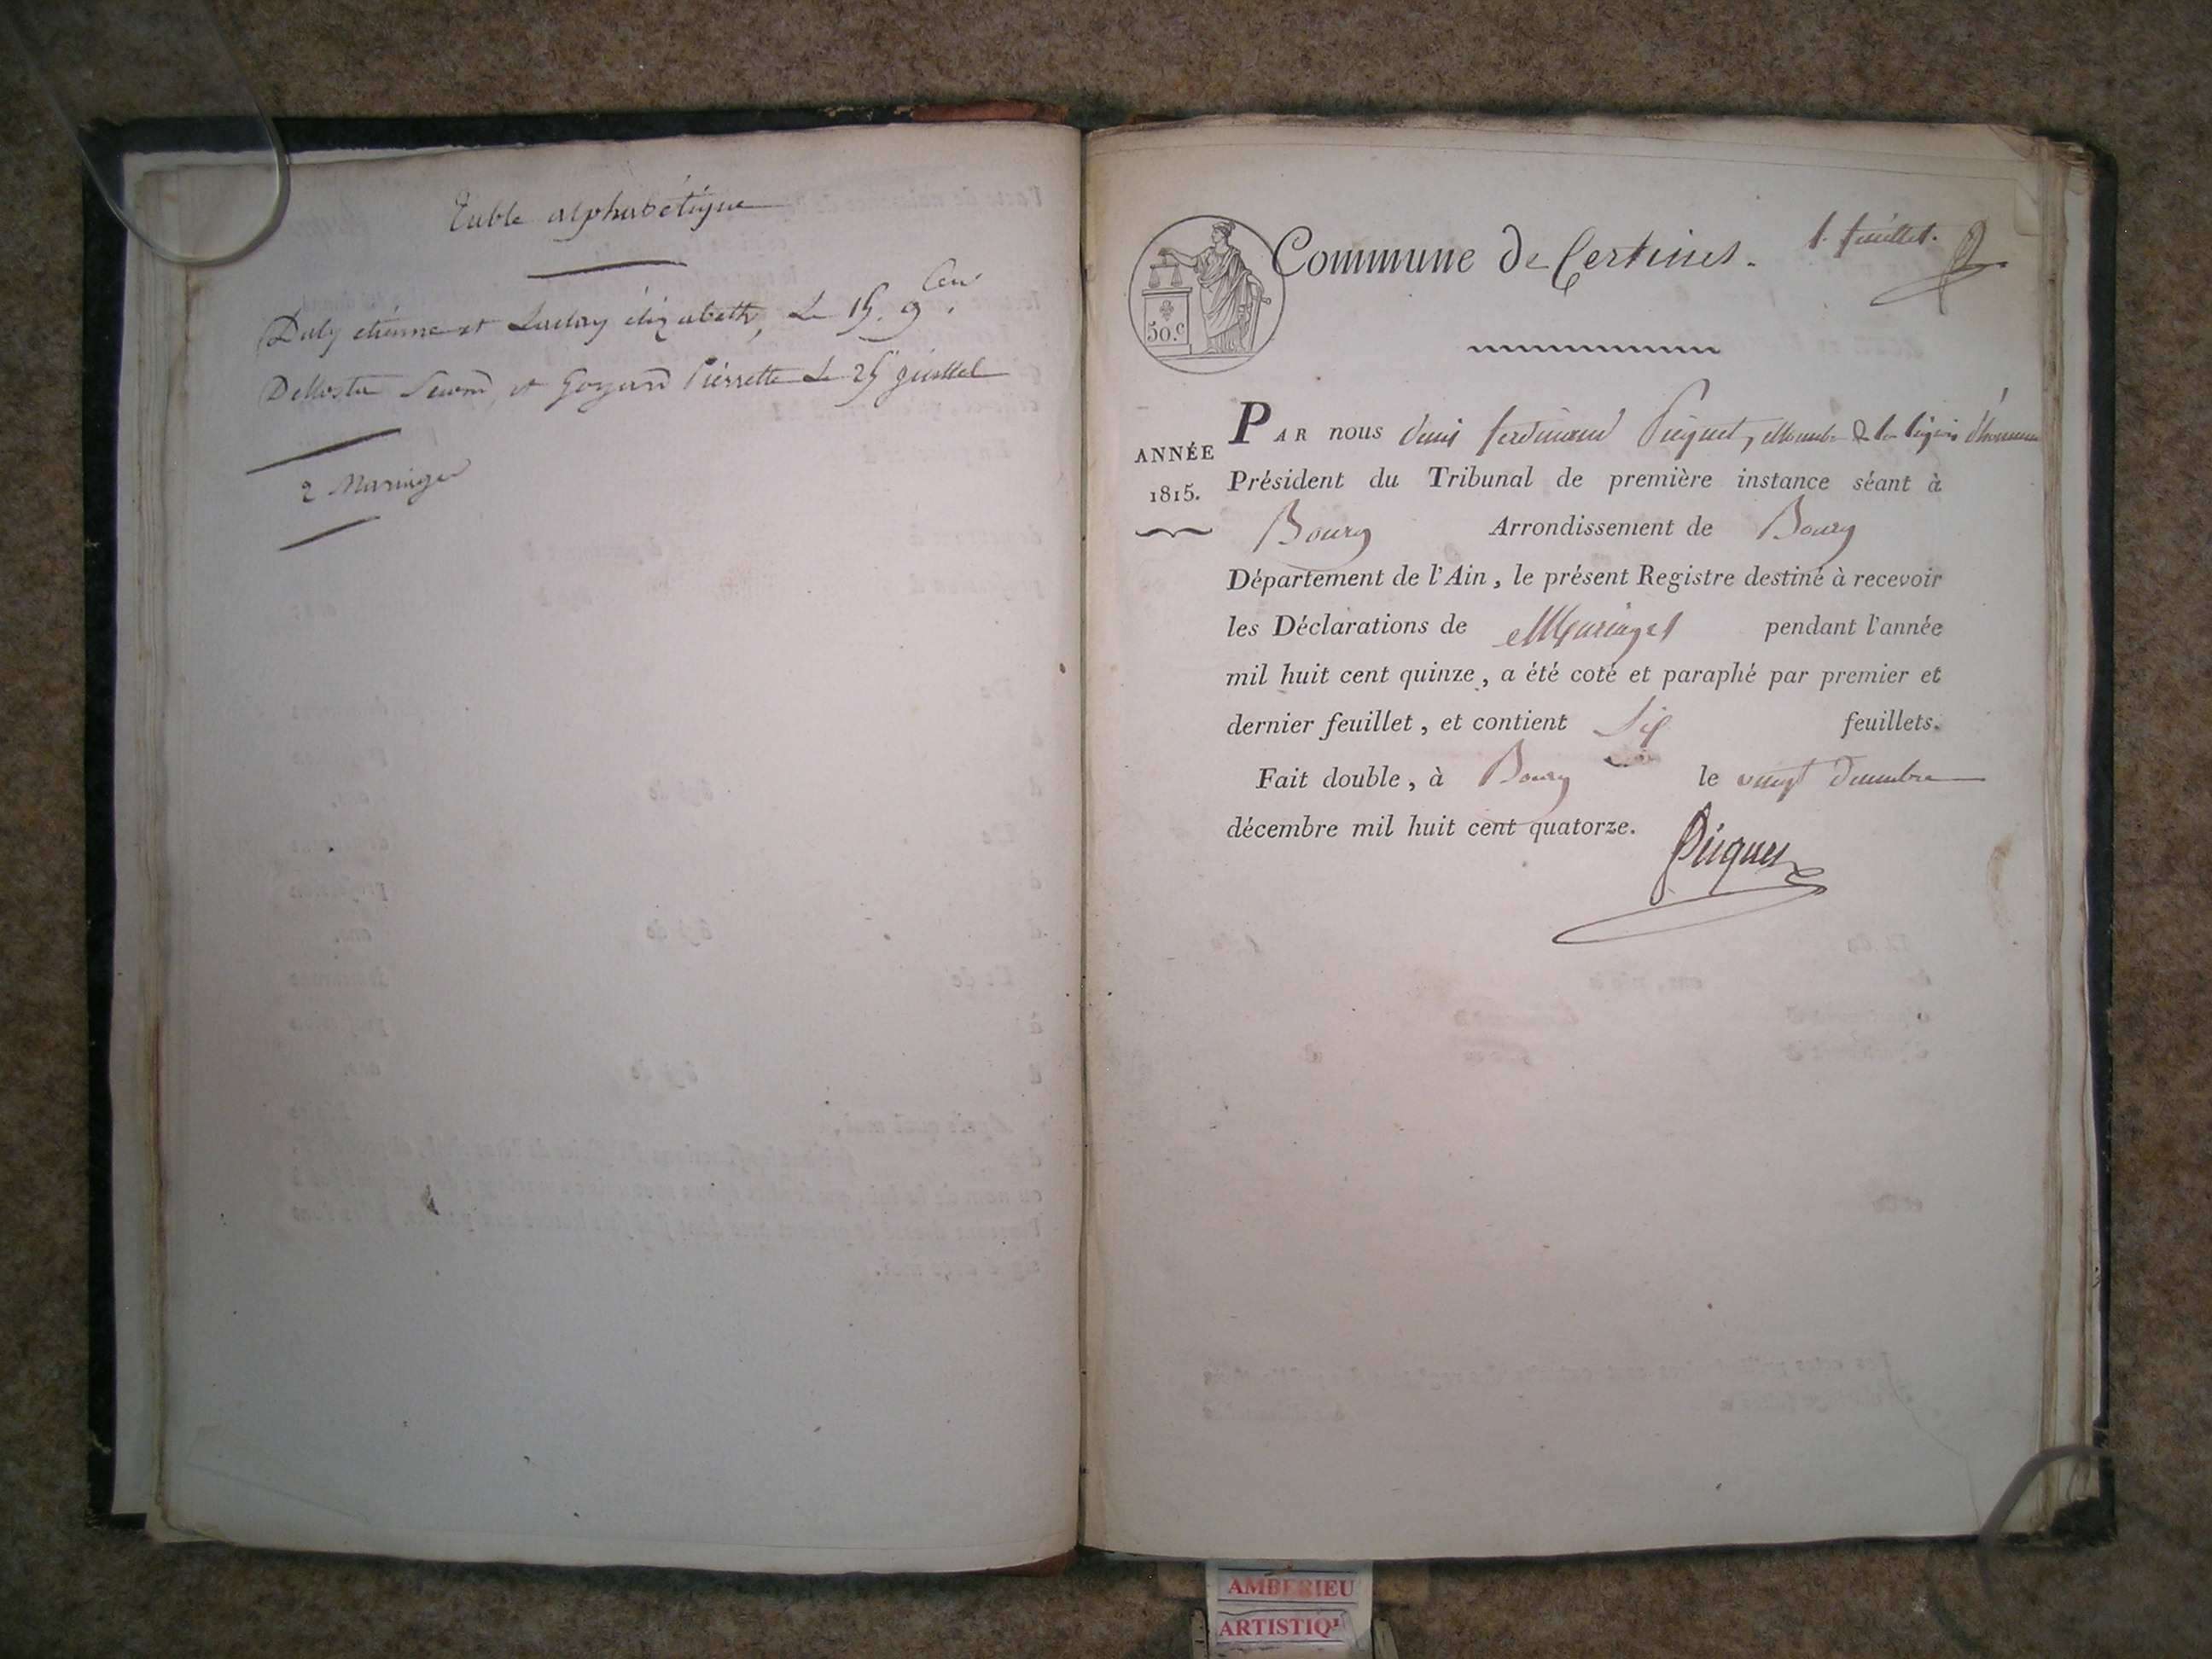 Table alphabétique
Daly etienne et élizabeth, Le 15. 9.bre
Second, et Goyard Pierrette Le 25 juillet
2 Mariages
Commune de Certines.
1. feuillet.
50.c
ANNÉE
1815.
PAR nous denis ferdinand Picquet, Membre de la légion d'honneur
Président du Tribunal de première instance séant à
Bourg Arrondissement de Bourg
Département de l'Ain, le présent Registre destiné à recevoir
les Déclarations de Mariages pendant l'année
mil huit cent quinze, a été coté et paraphé par premier et
dernier feuillet, et contient Six feuillets.
Fait double, à Bourg le vingt decembre
décembre mil huit cent quatorze.
Picquet
AMBERIEU
ARTISTIQ